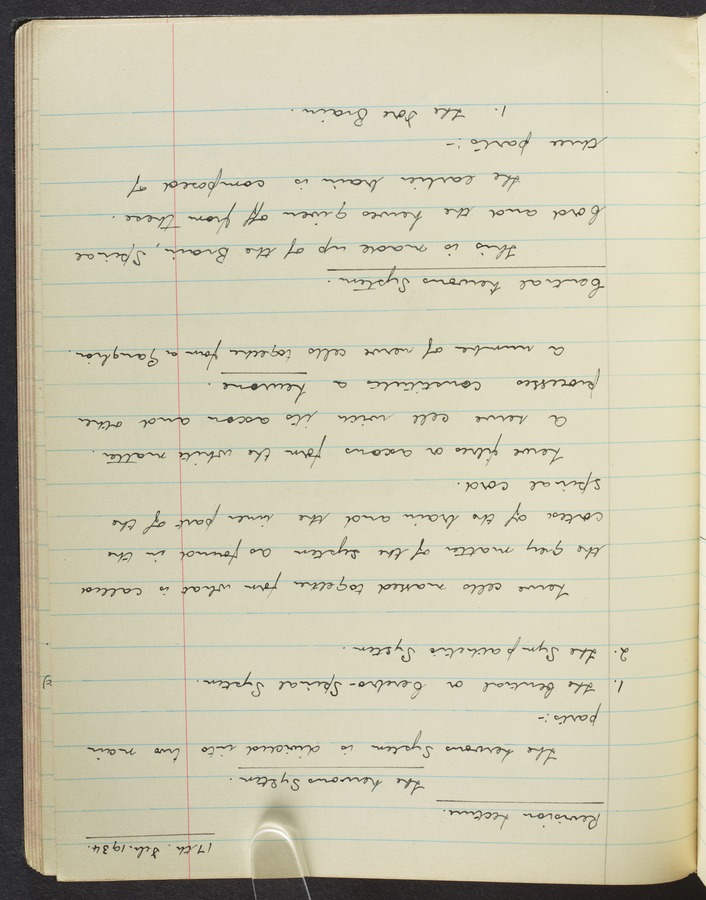 17th. Feb. 1934.
Revision Lecture.
The Nervous System.
The Nervous System is divided into two main
parts:-
1. The Central or Cerebro-Spinal System.
2. The Sympathetic System.
Nerve cells massed together form what is called
the grey matter of the system as found in the
cortex of the brain and the inner part of the
spinal cord.
Nerve fibres or axons form the white matter.
A nerve cell with its axon and other
processes constitutes a neurone.
A number of nerve cells together form a Ganglion.
Central Nervous System.
This is made up of the Brain, Spinal
Cord and the nerves given off from these.
The earlier brain is composed of
three parts:-
1. The Fore Brain.